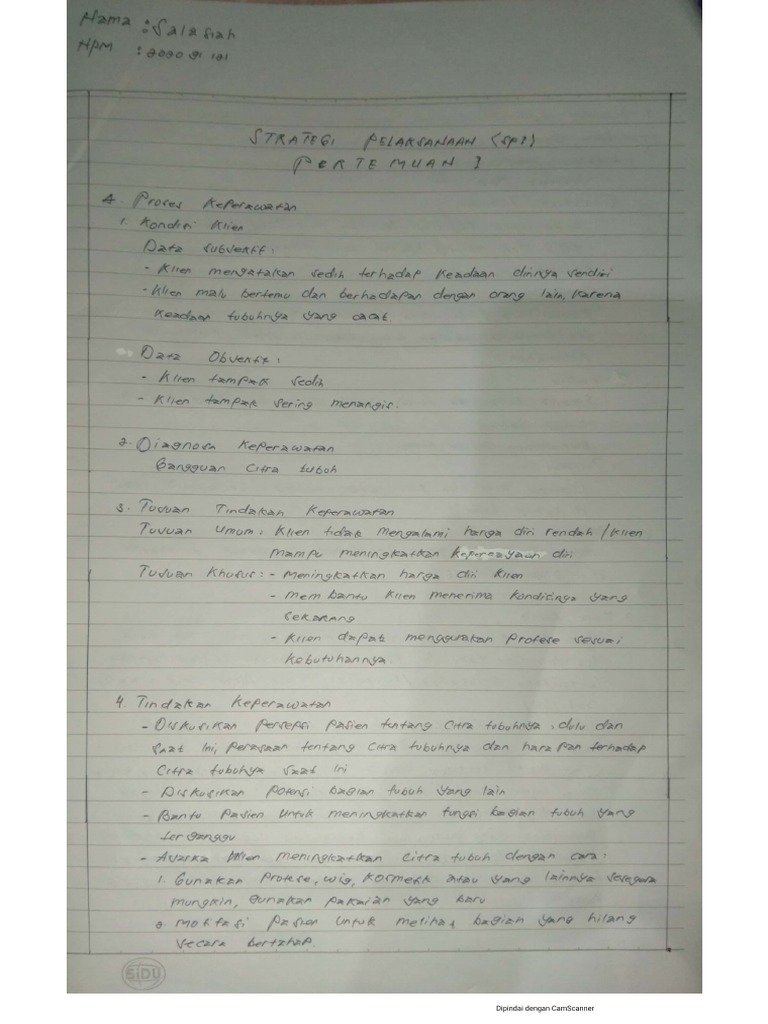 Nama : Salasiah
NPM : 2090 91 121
STRATEGI PELAKSANAAN (SP1)
PERTEMUAN 1
A. Proses Keperawatan
1. Kondisi Klien
Data Subyektif :
- Klien mengatakan sedih terhadap keadaan dirinya sendiri
- Klien malu bertemu dan berhadapan dengan orang lain, karena
keadaan tubuhnya yang cacat.
Data Obyektif :
- Klien tampak sedih
- Klien tampak sering menangis.
2. Diagnosa Keperawatan
Gangguan Citra tubuh
3. Tujuan Tindakan Keperawatan
Tujuan Umum : Klien tidak mengalami harga diri rendah / Klien
mampu meningkatkan kepercayaan diri
Tujuan Khusus : - Meningkatkan harga diri Klien
- Membantu Klien menerima kondisinya yang
sekarang
- Klien dapat menggunakan Protese sesuai
kebutuhannya.
4. Tindakan Keperawatan
- Diskusikan persepsi pasien tentang citra tubuhnya, dulu dan
saat ini, perasaan tentang citra tubuhnya dan harapan terhadap
citra tubuhya saat ini
- Diskusikan potensi bagian tubuh yang lain
- Bantu pasien untuk meningkatkan fungsi bagian tubuh yang
terganggu
- Ajarka klien meningkatkan citra tubuh dengan cara :
1. Gunakan Protese, wig, kosmetik atau yang lainnya sesegera
mungkin, gunakan pakaian yang baru
2. Motifasi pasien untuk melihat bagian yang hilang
secara bertahap.
SIDU
Dipindai dengan CamScanner